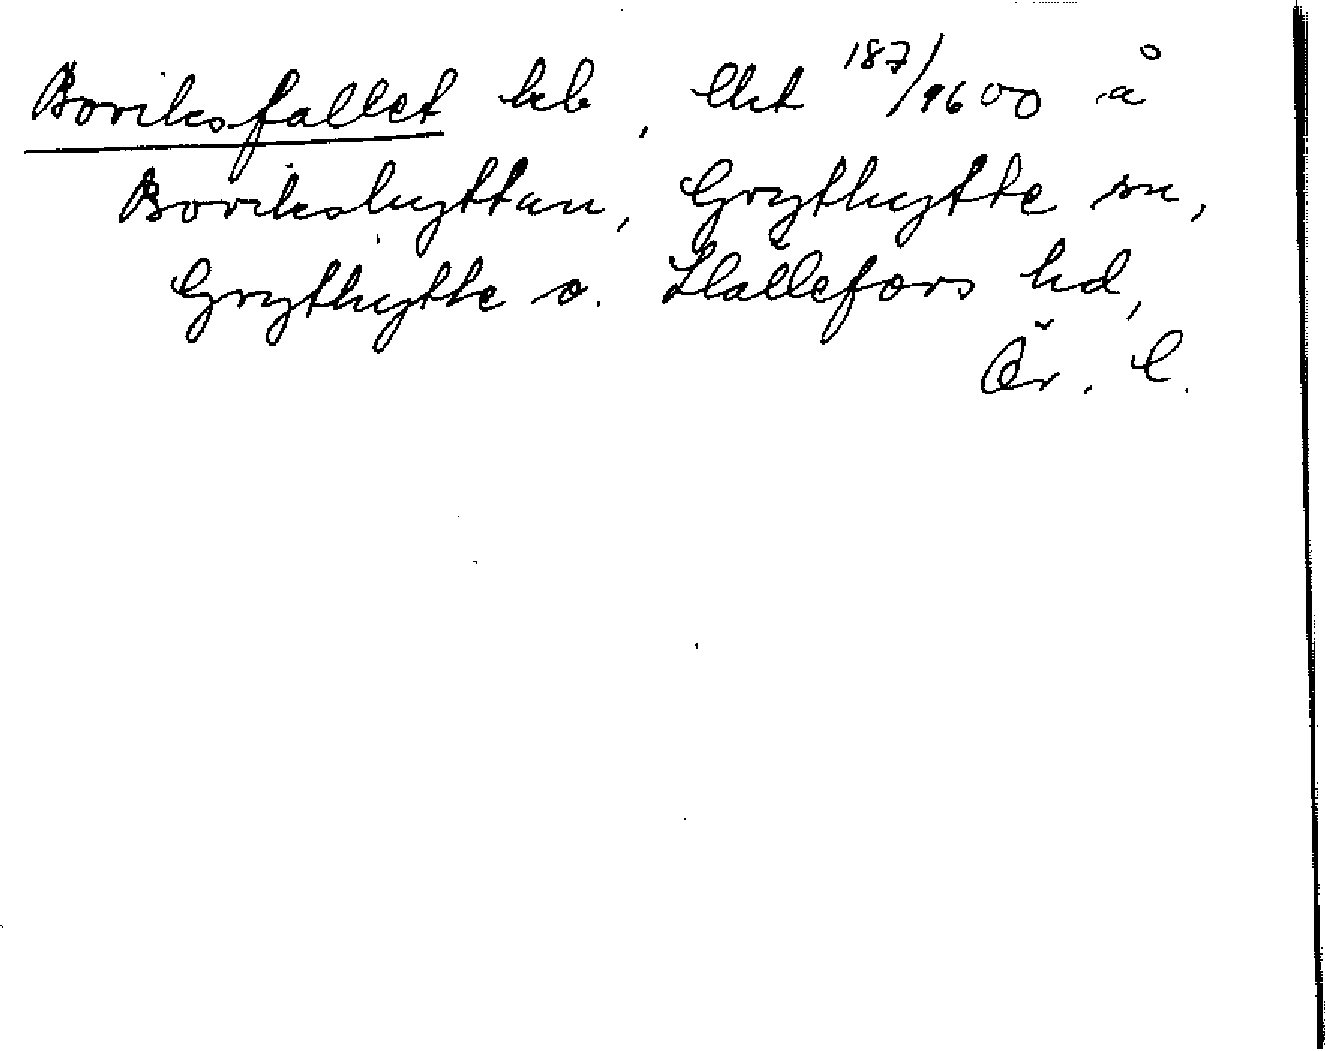 Boriksfallet lhb, lht 187/9600 å
Borikshyttan, Grythytte sn,
Grythytte o. Hällefors hd,
Ör. l.